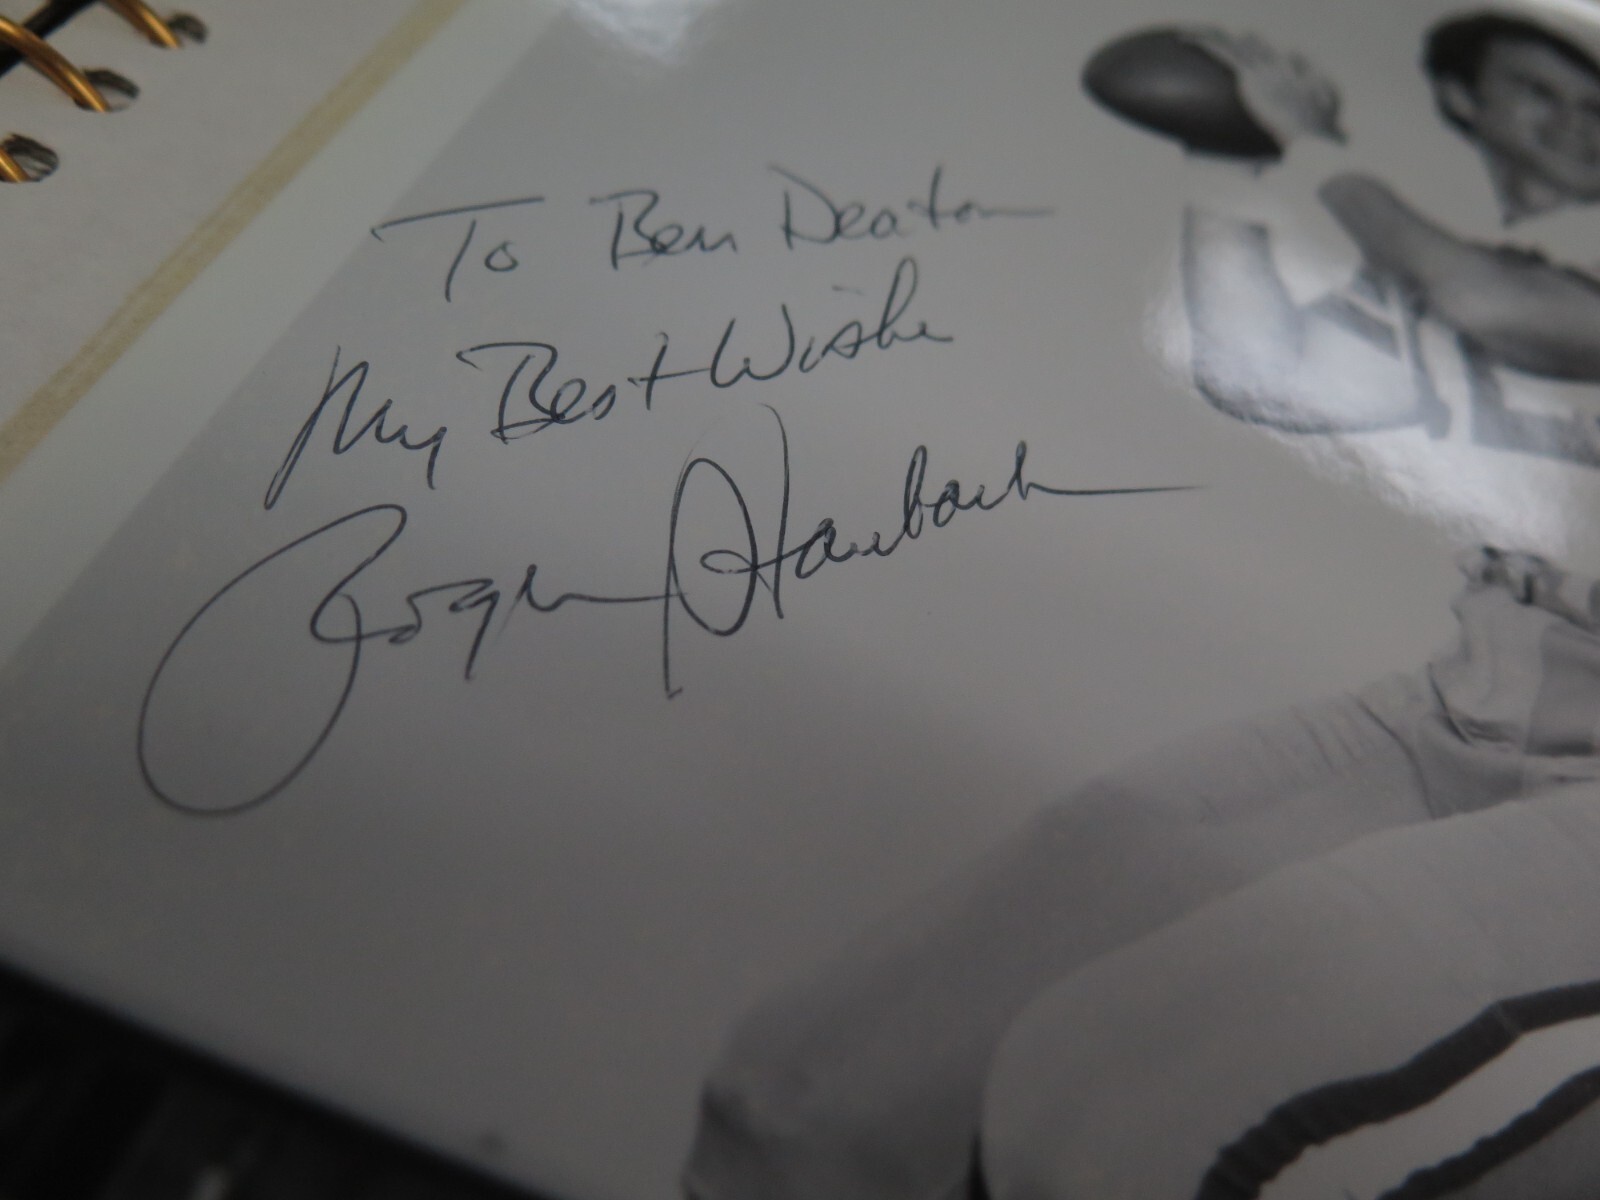 To Ben Deaton
My Best Wishe
Roger Staubach